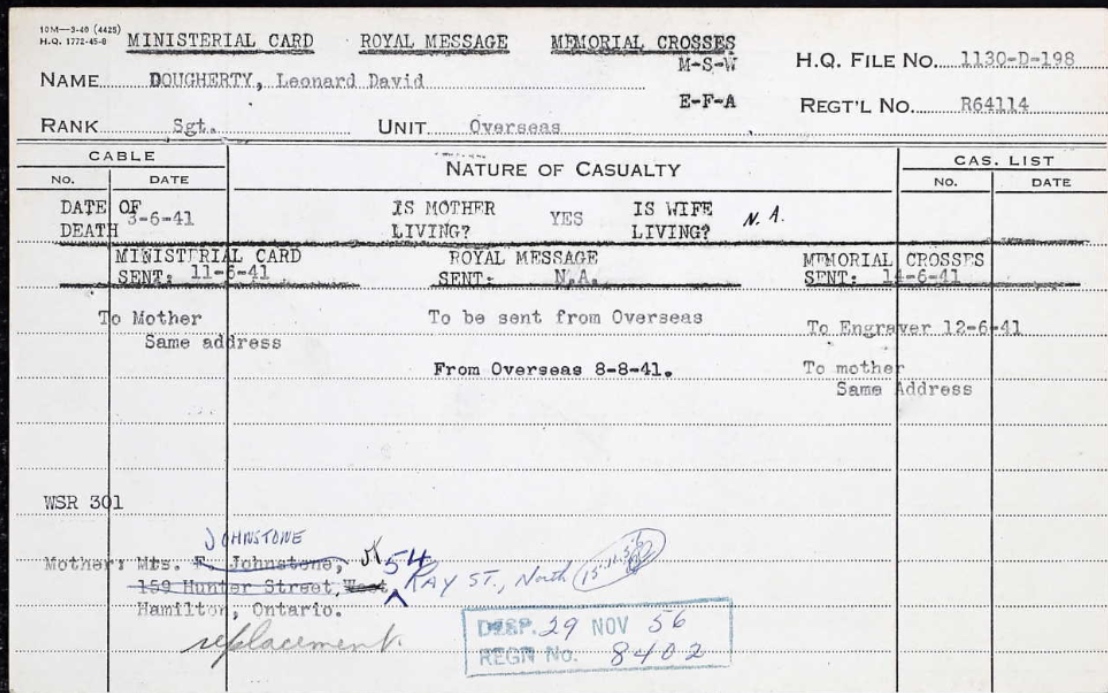 10M—3-40 (4425)
H.Q. 1772-45-6
MINISTERIAL CARD ROYAL MESSAGE MEMORIAL CROSSES
M-S-W
H.Q. FILE NO. 1130-D-198
NAME DOUGHERTY, Leonard David
E-F-A
REGT'L NO. R64114
RANK Sgt. UNIT Overseas
CABLE NATURE OF CASUALTY CAS. LIST
NO. DATE NO. DATE
DATE OF DEATH 3-6-41 IS MOTHER LIVING? YES IS WIFE LIVING? N.A.
MINISTERIAL CARD ROYAL MESSAGE MEMORIAL CROSSES
SENT: 11-6-41 SENT: N.A. SENT: 14-6-41
To Mother To be sent from Overseas To Engraver 12-6-41
Same address
From Overseas 8-8-41. To mother
Same Address
WSR 301
JOHNSTONE
Mother: Mrs. F. Johnstone, 54
159 Hunter Street, West, RAY ST., North 15.12.56
Hamilton, Ontario.
replacement.
DESP. 29 NOV 56
REGN No. 8402